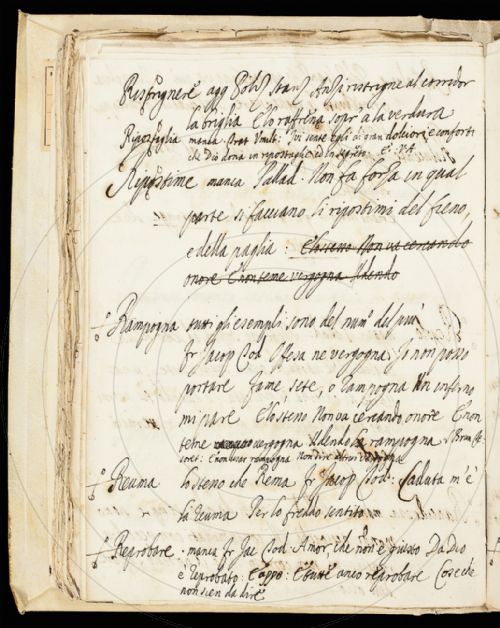 Rispignere agg Poliz stanz Anzi ristrigne al corridor
la briglia E lo raffrena sopr a la verdura
Ripostiglia manca Trat Umilt. Ivi sente egli di gran dolciori e conforti
che Dio dona in ripostaglie ed in segreto.
Ripostime manca Pallad. Non fa forza in qual
parte si facciano li ripostimi del fieno,
e della paglia:
onore E non teme vergogna Udendo
Rampogna tutti gli esempli sono del num.o del più
fr Jacop Tod Offesa ne vergogna Io non posso
portare fame sete, o rampogna Un inferno
mi pare E lo steno Non va cercando onore E non
teme vergogna Udendo rampogna
E non usar rampogna Non dire altrui vergogna
Reuma lo steno che Rema fr Jacop Tod: Caduta m'è
la reuma Per lo freddo sentito
Reprobare manca fr Jac Tod. Amor, che non è giusto Da Dio
è reprobato: E appo: E fuste anco reprobare Cose che
non sien da dire